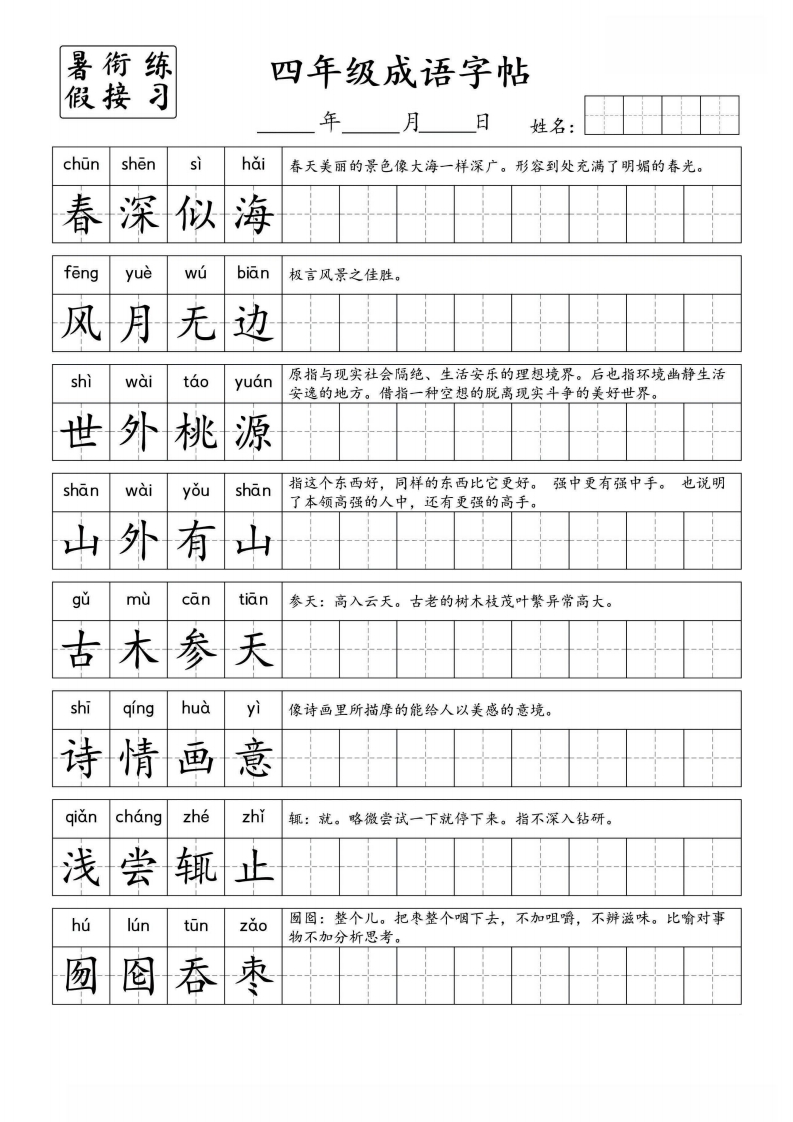 暑 衔 练
假 接 习
四年级成语字帖
年 月 日 姓名：
chūn shēn sì hǎi
春天美丽的景色像大海一样深广。形容到处充满了明媚的春光。
春 深 似 海
fēng yuè wú biān
极言风景之佳胜。
风 月 无 边
shì wài táo yuán
原指与现实社会隔绝、生活安乐的理想境界。后也指环境幽静生活
安逸的地方。借指一种空想的脱离现实斗争的美好世界。
世 外 桃 源
shān wài yǒu shān
指这个东西好，同样的东西比它更好。 强中更有强中手。 也说明
了本领高强的人中，还有更强的高手。
山 外 有 山
gǔ mù cān tiān
参天：高入云天。古老的树木枝茂叶繁异常高大。
古 木 参 天
shī qíng huà yì
像诗画里所描摩的能给人以美感的意境。
诗 情 画 意
qiǎn cháng zhé zhǐ
辄：就。略微尝试一下就停下来。指不深入钻研。
浅 尝 辄 止
hú lún tūn zǎo
囫囵：整个儿。把枣整个咽下去，不加咀嚼，不辨滋味。比喻对事
物不加分析思考。
囫 囵 吞 枣